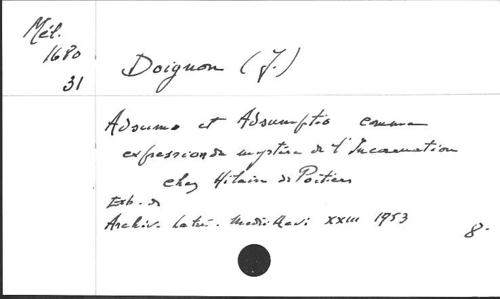 Mél.
1680
31
Doignon (J.)
Adsumo et Adsumptio comme
expression du mystère de l'Incarnation
chez Hilaire de Poitiers
Extr. de
Archiv. Latin. Medii Aevi XXIII 1953
8.